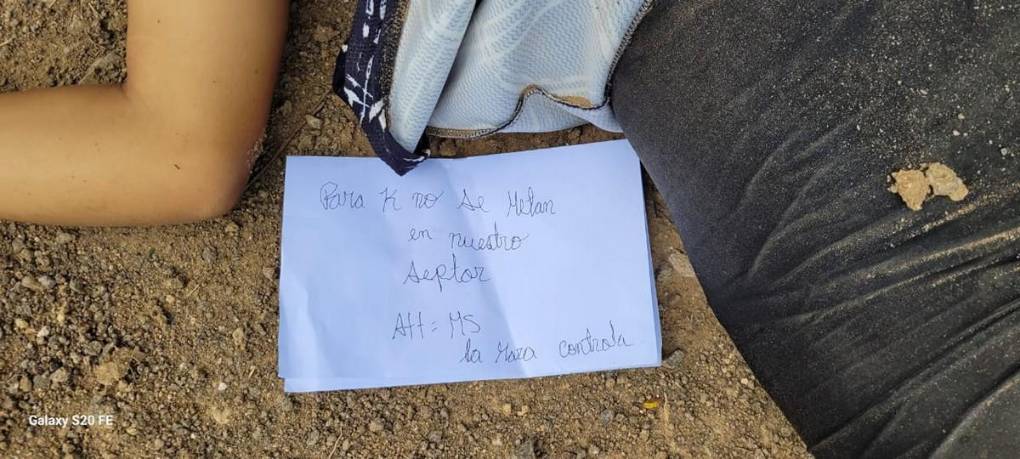 Para K no se Metan
en nuestro
septor
Att: MS
la Mara controla
Galaxy S20 FE